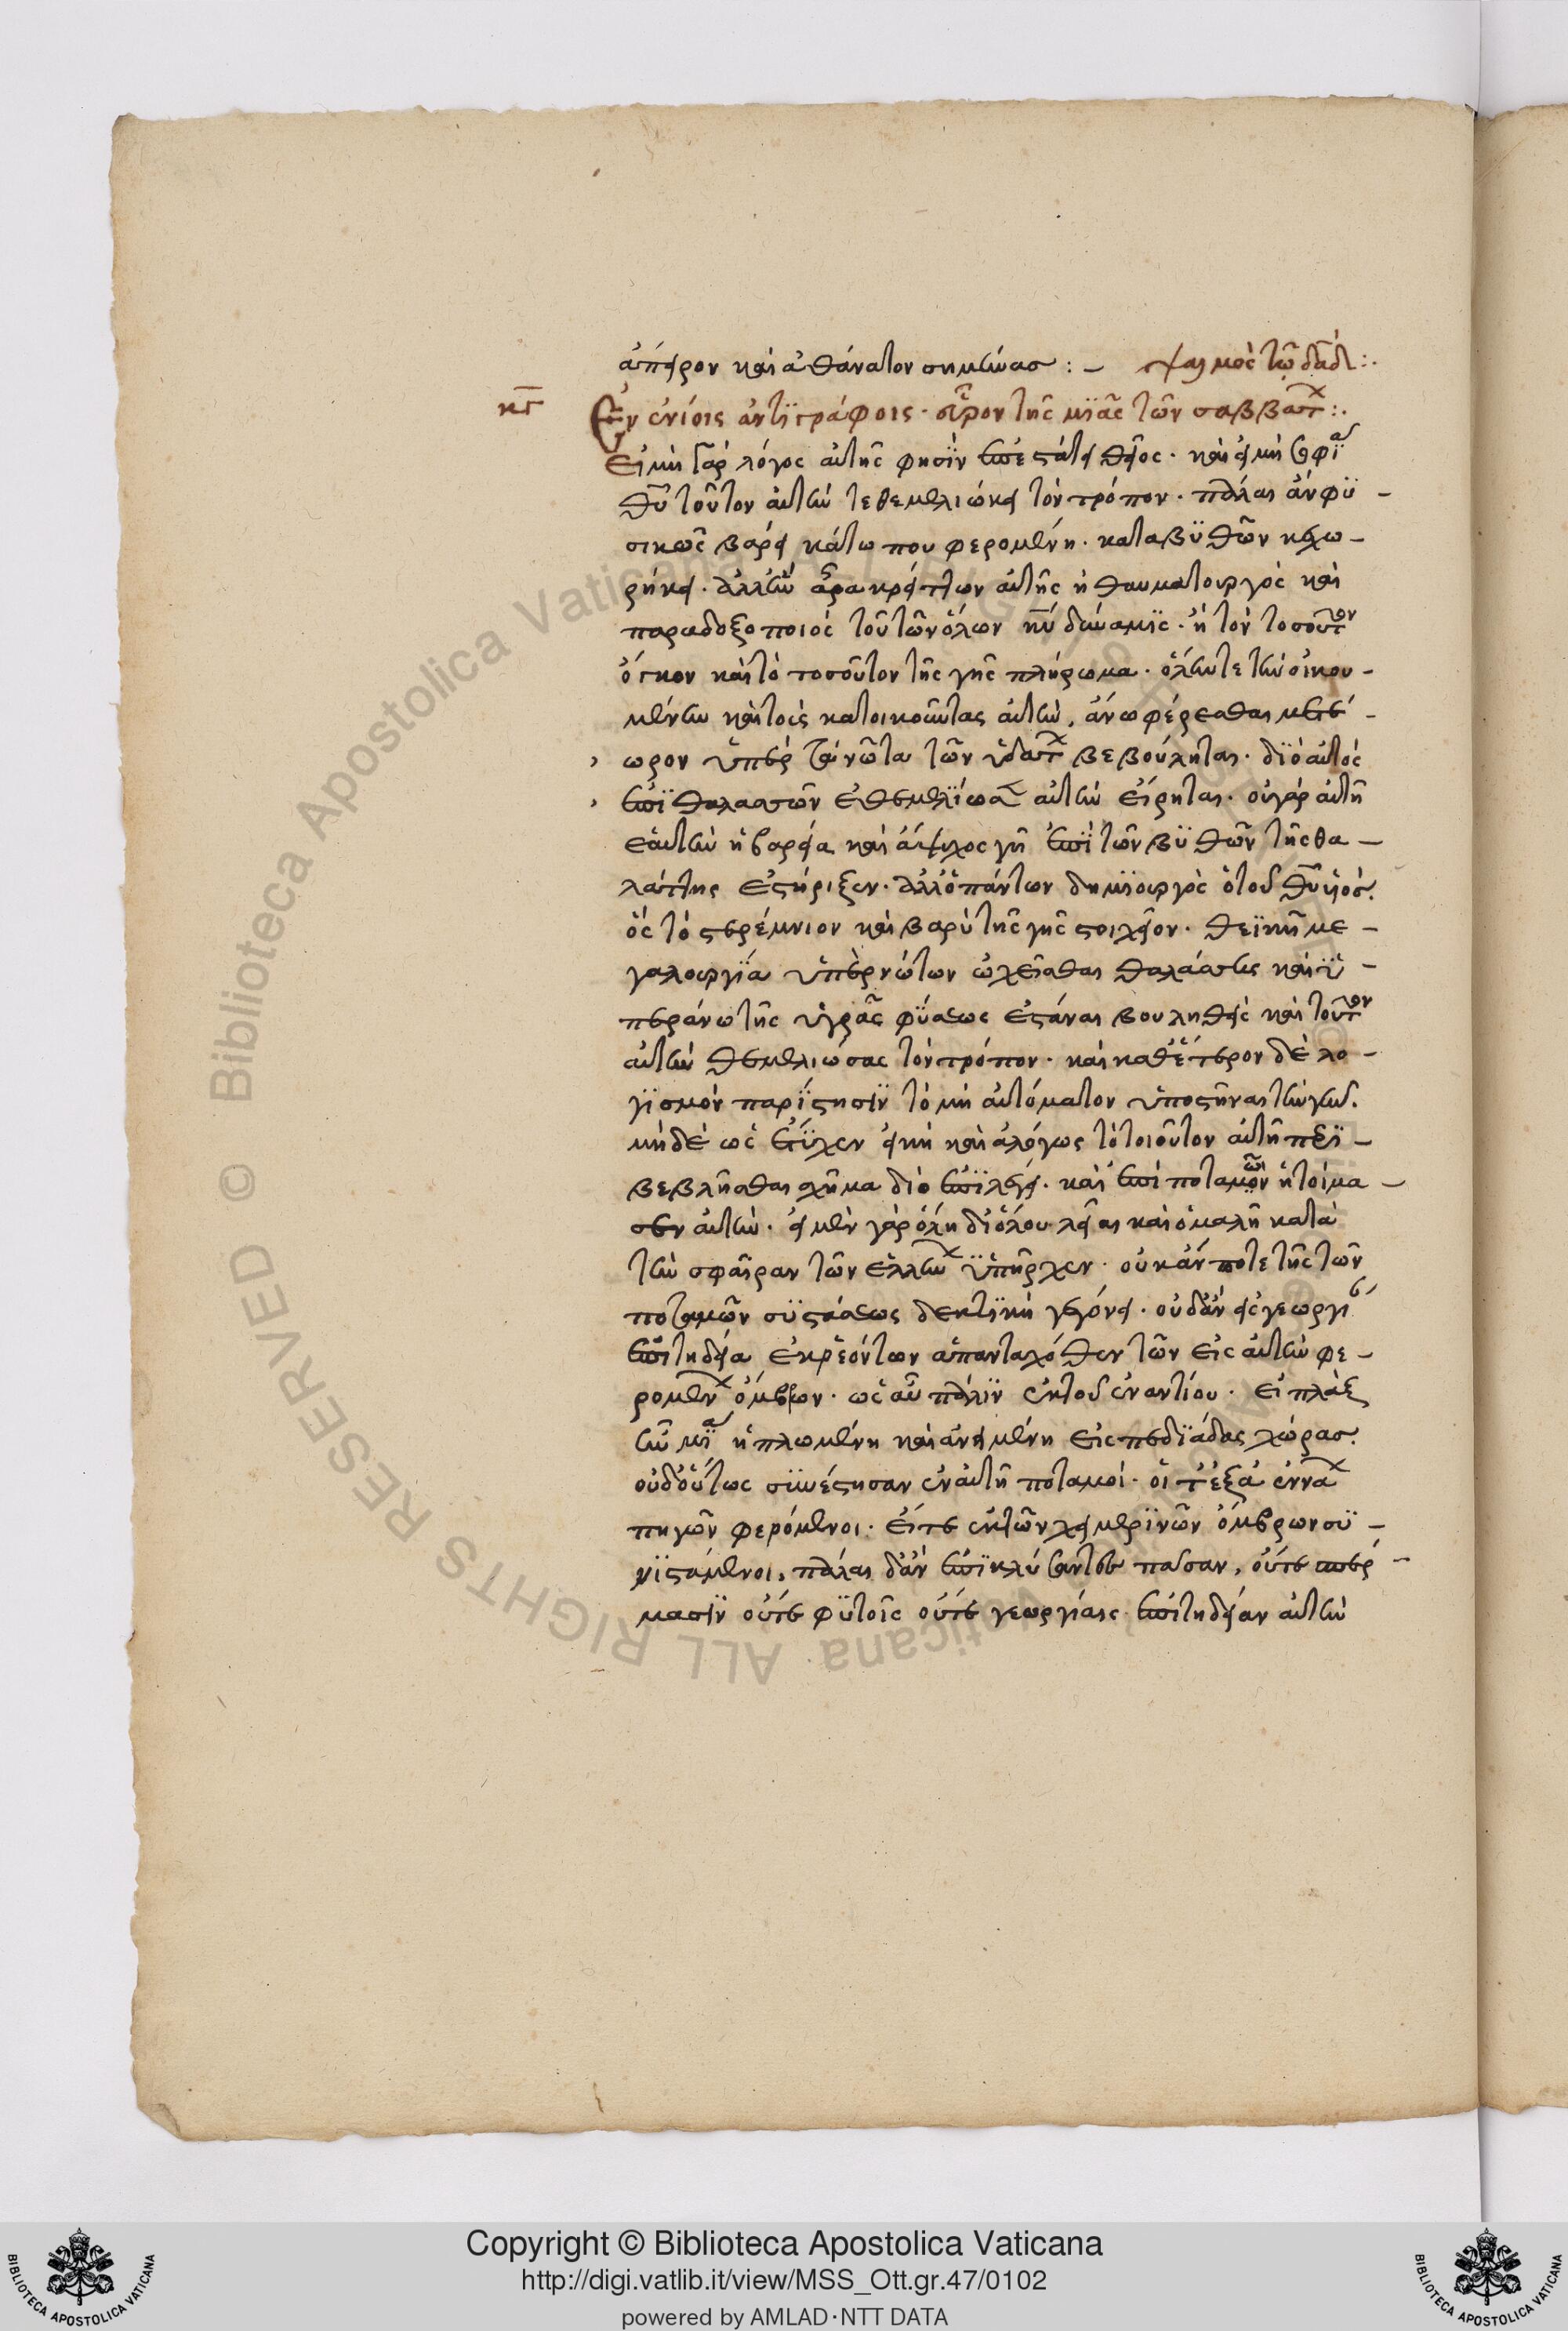 ἄπειρον καὶ ἀθάνατον σημῄνας :– ψαλμὸς τῶ δαδ :.
κγ
Ἐν ἐνίοις ἀντιγράφοις · τῆς μιᾶς τῶν σαββάτων :.
Εἰ μὴ γὰρ λόγος αὐτῆς φησὶν ἐπεστάτει θεῖος · καὶ εἰ μὴ σοφία
θυ τοῦτον αὐτὴν τεθεμελιώκει τὸν τρόπον · πάλαι ἂν φυ –
σικῶς βάρει κάτω που φερομένη · κατὰ βυθῶν κεχω –
ρήκει · ἀλλ' ἦν ἄρα κρείττων αὐτῆς ἡ θαυματουργὸς καὶ
παραδοξοποιὸς τοῦ τῶν ὅλων κυ δύναμις · ἣ τὸν τοσοῦτον
ὄγκον καὶ τὸ τοσοῦτον τῆς γῆς πλήρωμα · ὅλην τε τὴν οἰκου –
μένην καὶ τοὺς κατοικοῦντας αὐτὴν, ἄνω φέρεσθαι μετέ –
› ωρον ὑπὲρ τὰ νῶτα τῶν ὑδάτων βεβούληται · διὸ αὐτὸς
› ἐπὶ θαλασσῶν ἐθεμελίωσεν αὐτὴν εἴρηται · οὐ γὰρ αὐτὴ
ἑαυτὴν ἡ βαρεῖα καὶ ἄψυχος γῆ ἐπὶ τῶν βυθῶν τῆς θα –
λάττης ἐστήριξεν · ἀλλ' ὁ πάντων δημιουργὸς ὁ τοῦ θυ υἱός.
ὃς τὸ στερέμνιον καὶ βαρὺ τῆς γῆς στοιχεῖον · θεϊκῆ με –
γαλουργία ὑπὲρ νώτων ὀχεῖσθαι θαλάσσης καὶ ὑ –
περάνω τῆς ὑγρᾶς φύσεως ἑστάναι βουληθεὶς καὶ τοῦτον
αὐτὴν θεμελιώσας τὸν τρόπον · καὶ καθ' ἕτερον δὲ λο –
γισμὸν παρίστησιν τὸ μὴ αὐτόματον ὑποστῆναι τὴν γῆν.
μὴ δὲ ὡς ἔτυχεν εἰκῆ καὶ ἀλόγως τὸ τοιοῦτον αὐτὴ περι –
βεβλῆσθαι σχῆμα διὸ ἐπιλέγει · καὶ ἐπὶ ποταμῶν ἡτοίμα –
σεν αὐτὴν · εἰ μὲν γὰρ ὅλη δι' ὅλου λεία καὶ ὁμαλὴ κατὰ
τὴν σφαῖραν τῶν ὑπῆρχεν · οὐκ ἄν ποτε τῆς τῶν
ποταμῶν συστάσεως δεκτικὴ γεγόνει · οὐδ' ἂν εἰς γεωργίαν
ἐπιτηδεία ἐκρεόντων ἁπανταχόθεν τῶν εἰς αὐτὴν φε –
ρομένων ὄμβρων · ὡς αὖ πάλιν ἐκ τοῦ ἐναντίου · εἰ πλὰξ
ἦν μία ἡπλωμένη καὶ ἀνειμένη εἰς πεδιάδας χώρας.
οὐδ' οὕτως συνέστησαν ἐν αὐτῆ ποταμοί · οἵ τ' ἐξ ἀεννάων
πηγῶν φερόμενοι · εἴτε ἐκ τῶν χειμερινῶν ὄμβρων συ –
νιστάμενοι, πάλαι δ' ἂν ἐπικλύσαντες πᾶσαν, οὔτε σπέρ –
μασιν οὔτε φυτοῖς οὔτε γεωργίαις ἐπιτηδείαν αὐτὴν
Copyright © Biblioteca Apostolica Vaticana
http://digi.vatlib.it/view/MSS_Ott.gr.47/0102
powered by AMLAD·NTT DATA